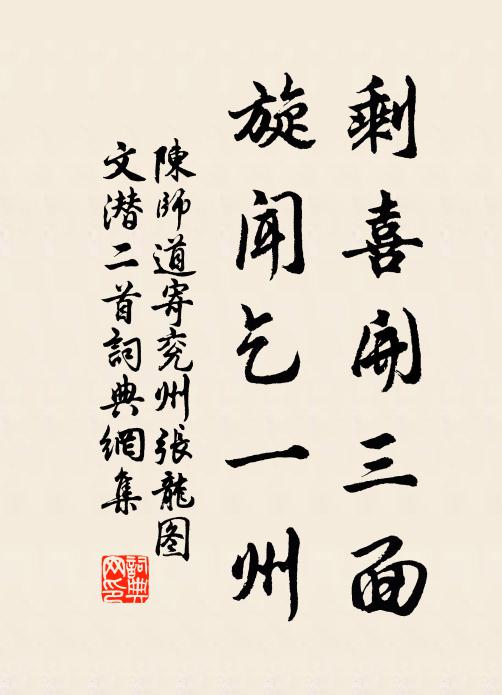 剩喜開三面
旋闻乞一州
陳師道寄兖州張龍图
文潜二首詞典網集
詞典
网印